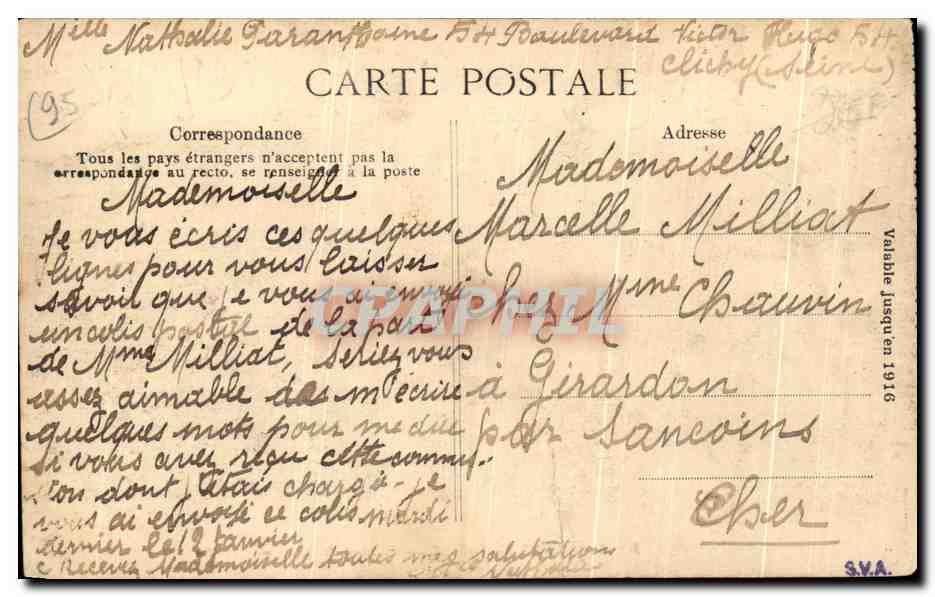 Mlle Nathalie Paranthoine 54 Boulevard Victor Hugo 54
Clichy (Seine)
95
CARTE POSTALE
Correspondance
Tous les pays étrangers n'acceptent pas la
correspondance au recto, se renseigner à la poste
Mademoiselle
Je vous écris ces quelques
lignes pour vous laisser
savoir que je vous ai envoyé
un colis postal de la part
de Mme Milliat, seriez vous
assez aimable des m'écrire
quelques mots pour me due
si vous avez reçu cette commis-
sion dont j'étais chargé. je
vous ai envoyé ce colis mardi
dernier le 12 Janvier
Recevez Mademoiselle toutes mes salutations
Adresse
Mademoiselle
Marcelle Milliat
chez Mme Chauvin
à Girardon
par Sancoins
Cher
Valable jusqu'en 1916
CPAPHIL
S.V.A.